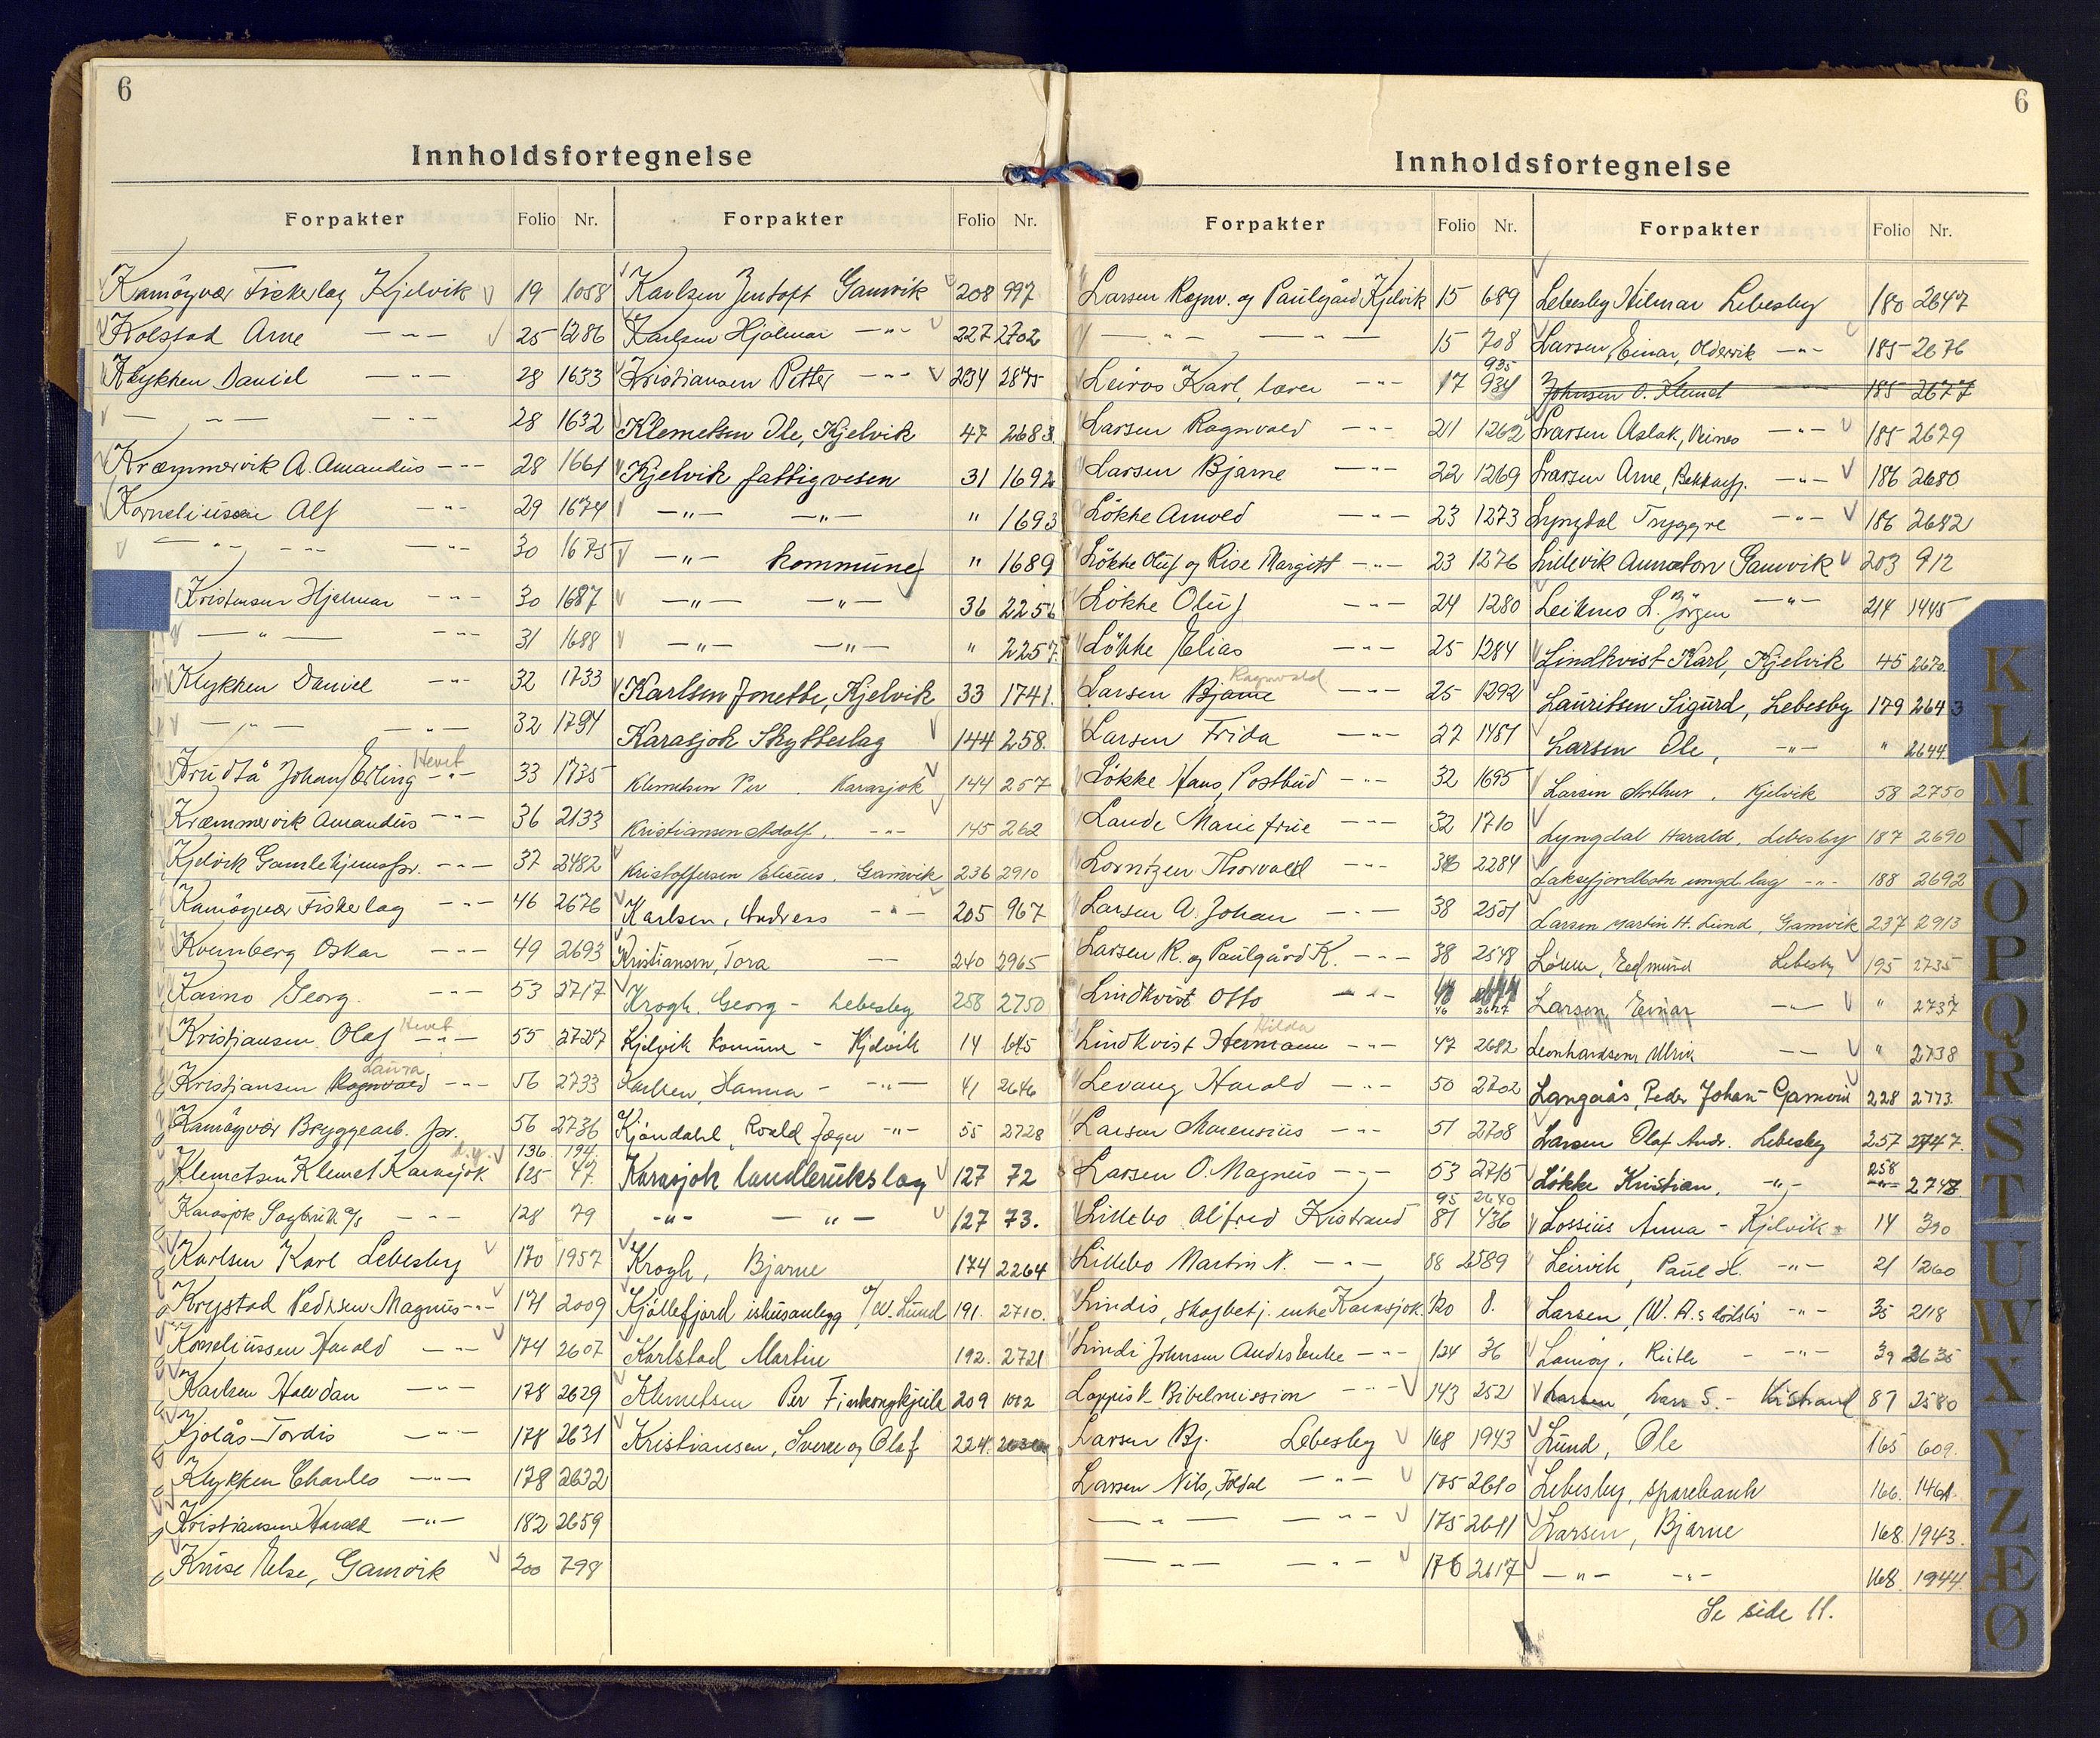 6
Innholdsfortegnelse
Forpakter Folio Nr. Forpakter Folio Nr.
Kamöyvær Fiskerlag Kjelvik 19 1058
Kolstad Arne —"— 25 1286
Klykken Daniel —"— 28 1633
—"— —"— 28 1632
Kræmmervik A. Amandüs —"— 28 1661
Korneliüssen Alf —"— 29 1674
—"— —"— 30 1675
Kristensen Hjalmar —"— 30 1687
—"— —"— 31 1688
Klykken Daniel —"— 32 1733
—"— —"— 32 1734
Hevet
Johan Erling —"— 33 1735
Kræmmervik Amandüs —"— 36 2133
Kjelvik Gamlehjemsfor. —"— 37 2482
Kamöyvær Fiskerlag —"— 46 2676
Kvernberg Oskar —"— 49 2693
Kasino Georg. —"— 53 2717
Hevet
Kristjansen, Olaf —"— 55 2727
Laura
Kristjansen Ragnvald —"— 56 2733
Kamöyvær Bryggearb. for. —"— 56 2736
136 194
Klemetsen Klemet Karasjok 125 47
Karasjok Sagbrük A/S —"— 128 79
Karlsen Karl Lebesby 170 1957
Krystad Pedersen Magnüs —"— 171 2009
Korneliüssen Harald —"— 174 2607
Karlsen Halvdan —"— 178 2629
Kjolås Tordis —"— 178 2631
Klykken Charles —"— 178 2632
Kristiansen Harald —"— 182 2659
Krüse Else, Gamvik 200 798
Karlsen Jentoft Gamvik 208 997
Karlsen Hjalmar —"— 227 2702
Kristiansen Petter —"— 234 2875
Klemetsen Ole, Kjelvik 47 2683.
Kjelvik fattigvesen 31 1692
—"— —"— " 1693
—"— kommüne " 1689
—"— —"— 36 2256
—"— —"— " 2257.
Karlsen Jonette, Kjelvik 33 1741.
Karasjok Skytterlag 144 258.
Klemetsen Per . Karasjok 144 257
Kristiansen Adolf. —"— 145 262
Kristoffersen Elisëus. Gamvik 236 2910
Karlsen, Andreas —"— 205 967
Kristiansen, Tora — 240 2965
Krogh, Georg - Lebesby 258 2750
Kjelvik komüne - Kjelvik 14 645
Karlsen, Hanna - —"— 41 2646
Kjöndahl, Roald Jæger —"— 55 2728
Karasjok landbrükslag 127 72
—"— —"— 127 73.
Krogh, Bjarne 174 2264
Kjöllefjord ishüsanlegg v/ W. Lünd 191. 2710.
Karlstad Martin 192. 2721
Klemetsen Per Finkongkjeila 209 1012
Kristiansen, Sverre og Olaf 224.
6
Innholdsfortegnelse
Forpakter Folio Nr. Forpakter Folio Nr.
Larsen Ragnv. og Paülgård Kjelvik 15 689
—"— —"— 15 708
935
Leiros Karl, lærer —"— 17 934
Larsen Ragnvald —"— 21 1262
Larsen Bjarne —"— 22 1269
Lökke Arnold —"— 23 1273
Lökke Olüf og Rise Margitt —"— 23 1276
Lökke Olüf —"— 24 1280
Lökke Elias —"— 25 1284
Ragnvald
Larsen Bjarne —"— 25 1292
Larsen Frida —"— 27 1481
Lökke Hans, Postbüd —"— 32 1695
Lande Marie früe —"— 32 1710
Lorntzen Thorvald —"— 36 2284
Larsen A. Johan —"— 38 2501
Larsen R. og Paülgård K. —"— 38 2548
Lindkvist Otto —"— 46 2677
Hilda
Lindkvist Hermann —"— 47 2682
Levang Harald —"— 50 2702
Larsen Marensiüs —"— 51 2708
Larsen O. Magnüs —"— 53 2715
95 2640
Lillebo Alfred Kistrand 81 436
Lillebo Martin N. —"— 88 2589
Lindis, skogbetj. enke Karasjok. 120 8.
Lindi Johnsen Anders Enke —"— 124 36
Lappisk Bibelmission —"— 143 252
Larsen Bj. Lebesby 168 1943
Larsen Nils, Foldal —"— 175 2610
—"— —"— 175 2611
—"— —"— 176 2617
Lebesby Hilmar Lebesby 180 2647
Larsen, Einar, Oldervik —"— 185 2676
Johnsen O. Klemet 185 2677
Larsen Aslak, Veines —"— 185 2679
Larsen Arne, Bekkarfj. —"— 186 2680
Lyngdal Tryggve —"— 186 2682
Lillevik Anna Gamvik 203 912
Leiknes L. Jörgen —"— 214 1445
Lindkvist Karl, Kjelvik 45 2670.
Lauritsen Sigürd, Lebesby 179 2643
Larsen Ole, —"— " 2644
Larsen Arthur, Kjelvik 58 2750
Lyngdal Harald, Lebesby 187 2690
Laksefjordbotn ungd.lag —"— 188 2692
Larsen Martin H. Lünd, Gamvik 237 2913
Edmünd Lebesby 195 2735
Larsen, Einar —"— " 2737
Leonhardsen, Ulrik —"— " 2738
Langaås, Peder Johan - Gamvik 228 2773.
Larsen Olaf Andr. Lebesby 257 2747.
258
Løkke Kristian, —"— —"— 2748
Lossiüs Anna - Kjelvik - 14 390
Leirvik, Paül H. —"— 21 1260
Larsen, (W. A.s dödsbo —"— 35 2118
Lamöy, Rüth - —"— 39 2635
Larsen, Lars S. - Kistrand 87 2580
Lünd, Ole 165 609.
Lebesby, sparebank 166. 1461.
Larsen, Bjarne 168. 1943.
—"— —"— 168. 1944.
Se side 11.
K
L
M
N
O
P
Q
R
S
T
U
W
X
Y
Z
Æ
Ø